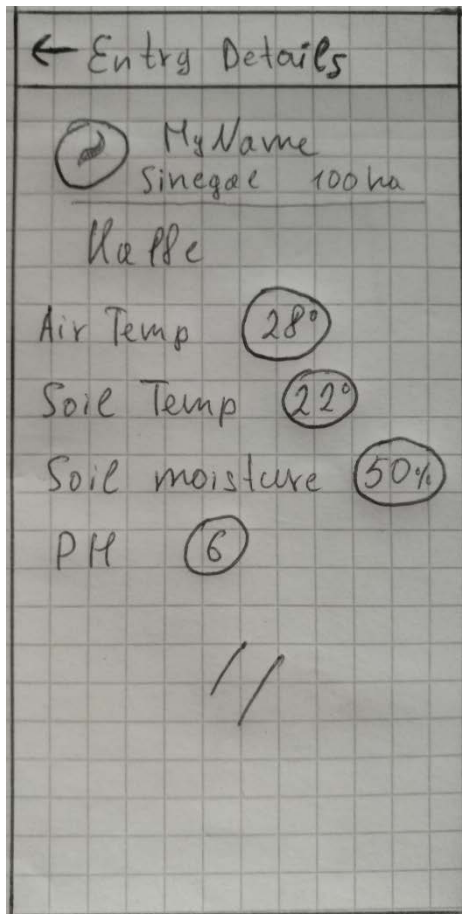 ← Entry Details
My Name
Sinegal 100 ha
Kaffe
Air Temp 28°
Soil Temp 22°
Soil moisture 50%
PH 6